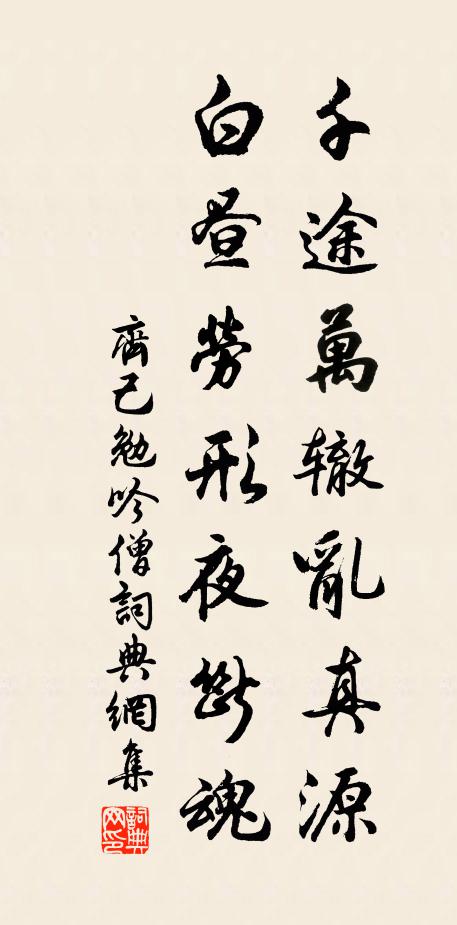 千途萬辙亂真源
白昼劳形夜断魂
齊己勉吟僧詞典網集
詞典網印